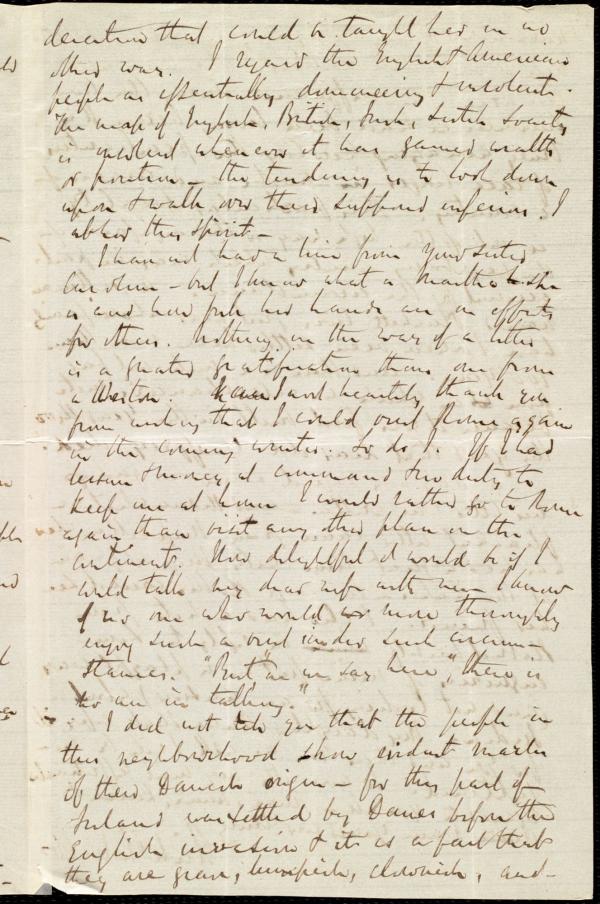 that could be taught her in no
other way. I regard the English & American
people as essentially domineering & insolent.
The mass of English, British, Irish, Scotch Society
is insolent whenever it has gained wealth
or position - the tendency is to look down
upon & walk over their supposed inferiors. I
abhor this spirit -
I have not had a line from your sister
Caroline - but I know what a Martha she
is and how full her hands are in efforts
for others. Nothing in the way of a letter
is a greater gratification than one from
a Weston. I most heartily thank you
from wishing that I could visit Rome again
in the coming winter. So do I. If I had
leisure & money at command & no duty to
keep me at home I would rather go to Rome
again than visit any other place on the
continent. How delightful it would be if I
could take my dear wife with me. I know
of no one who would more thoroughly
enjoy such a visit under such circum-
stances. "But" as we say here, "there is
no use in talking."
I did not tell you that the people in
this neighbourhood show evident marks
of their Danish origin - for this part of
Ireland was settled by Danes before the
English invasion & it is a fact that
they are grave, lumpish, clownish, and -